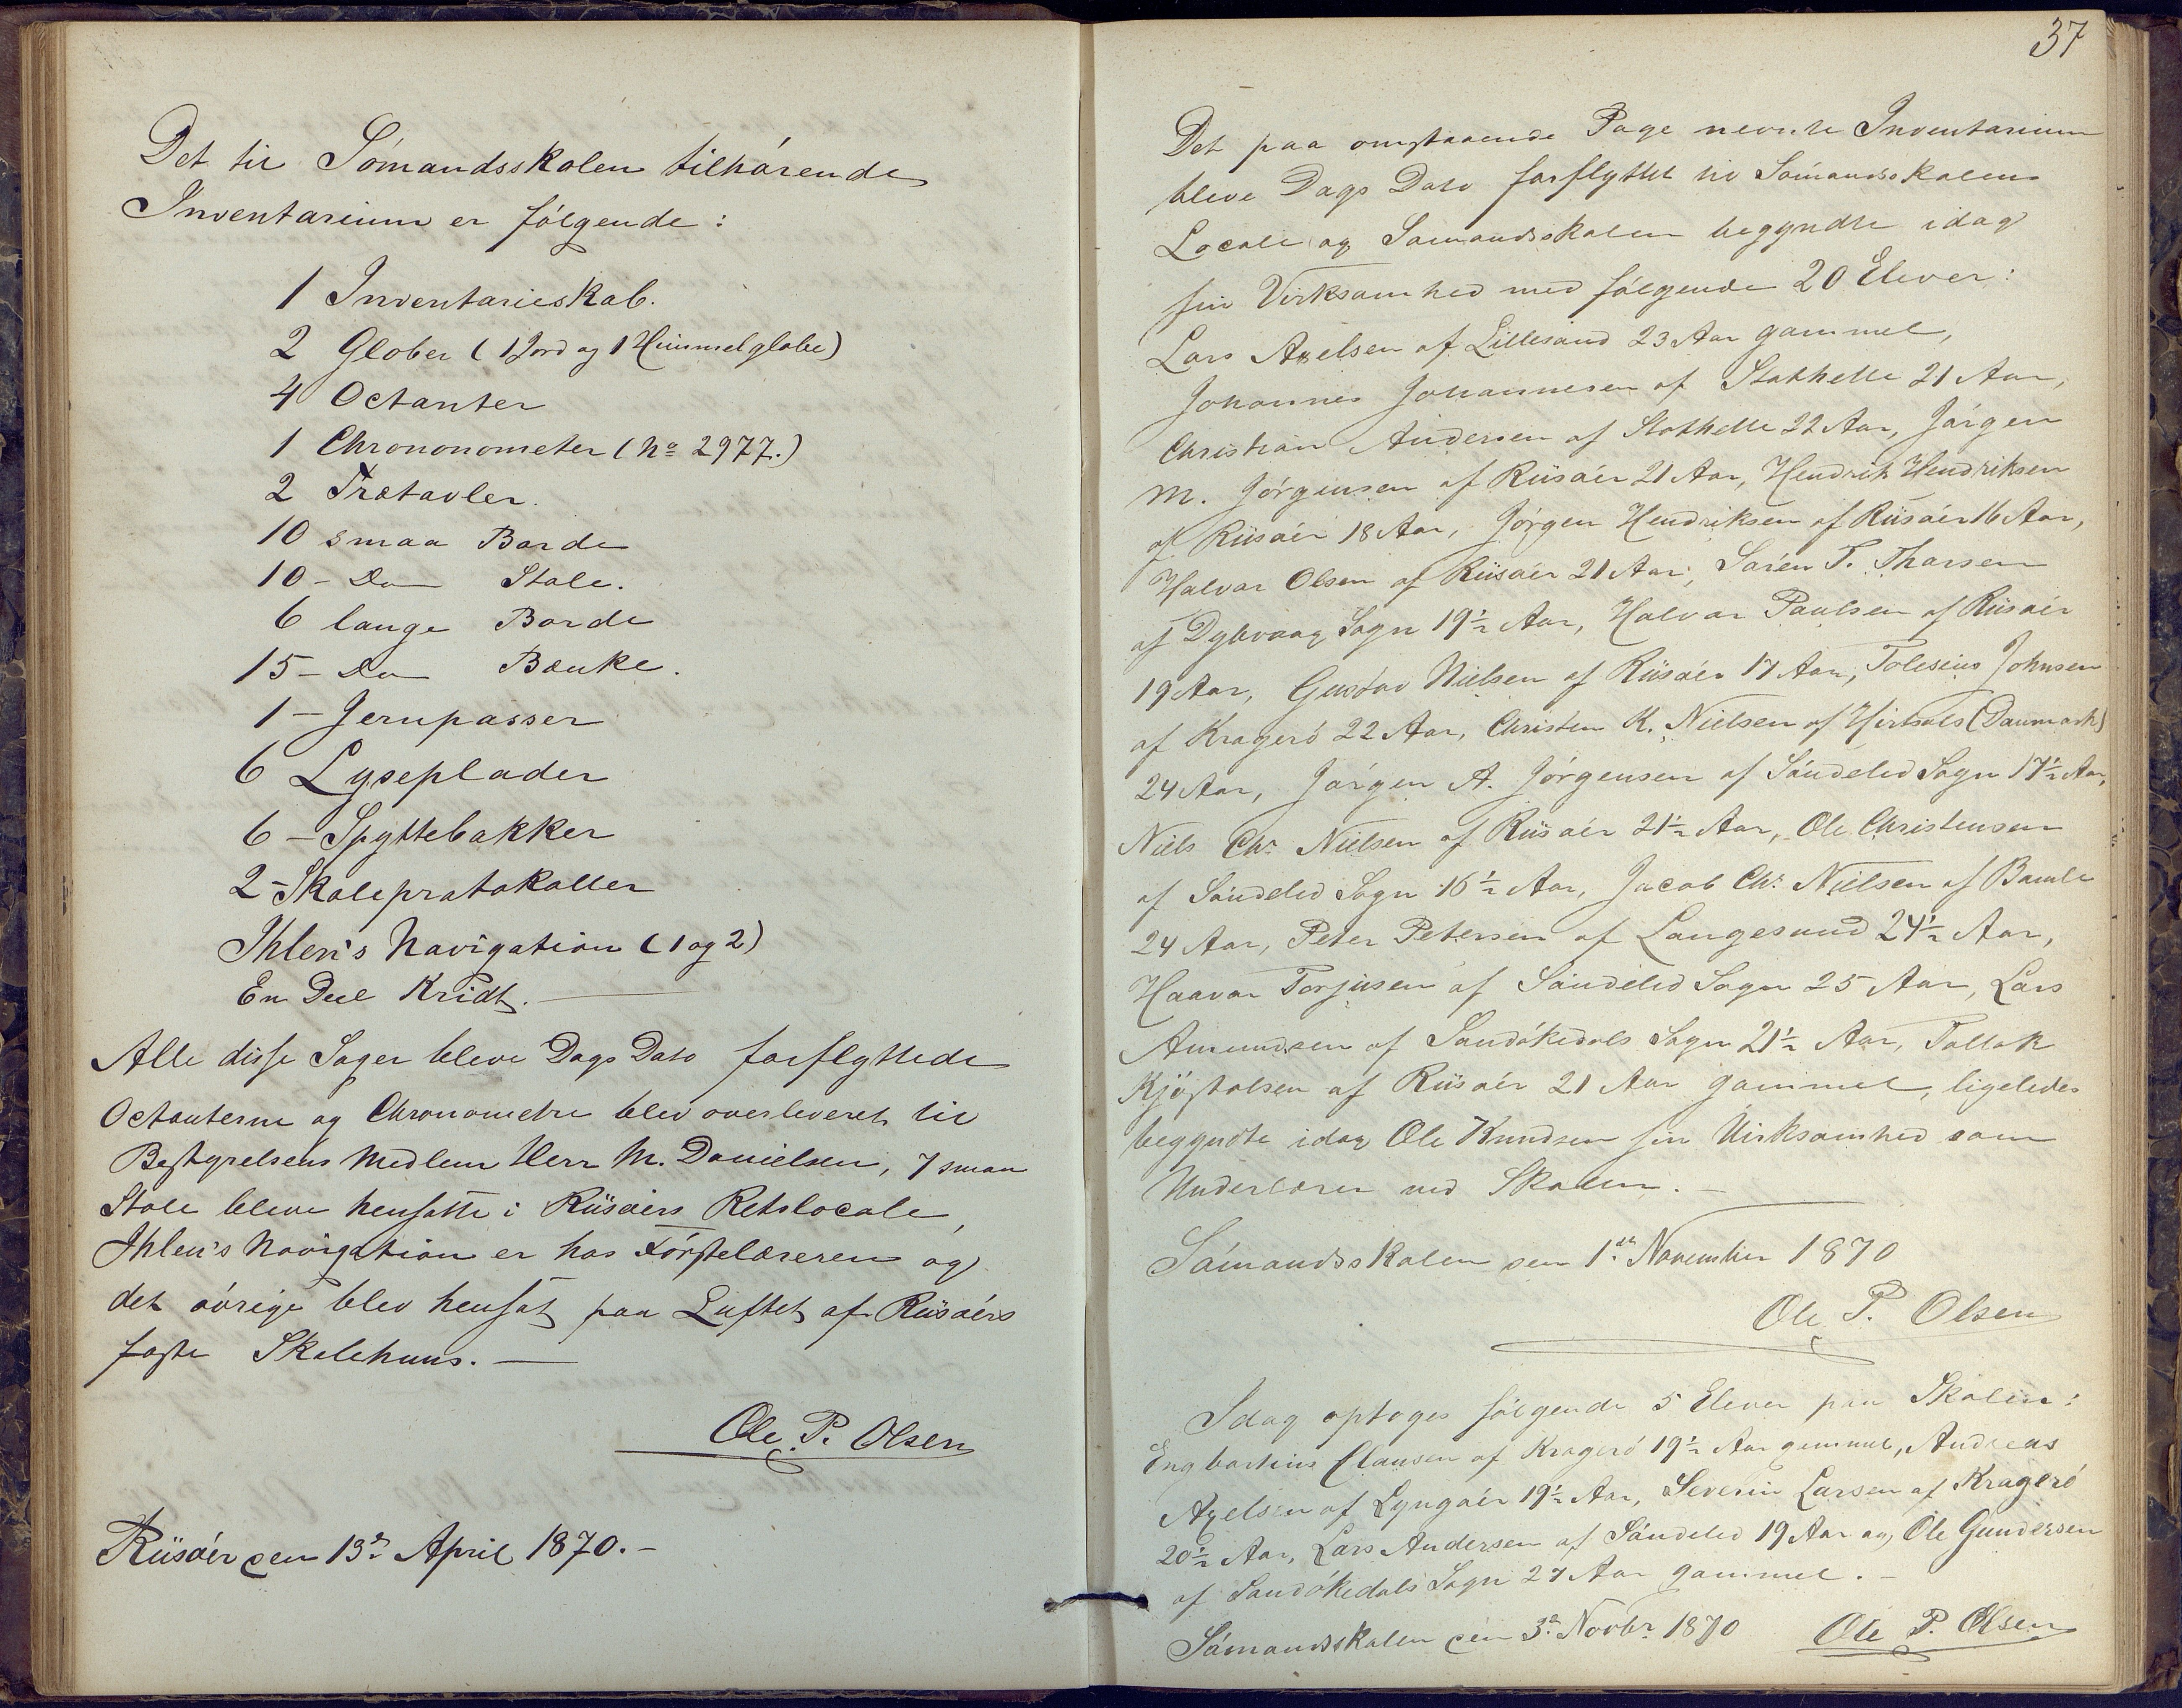 Det til Sómandsskolen tilhórende
Inventarium er fólgende:
1 Inventarieskab.
2 Glober (1 Jord og 1 Himmelglobe)
4 Octanter
1 Chrononometer (No 2977.)
2 Trætavler.
10 smaa Borde
10 - Do Stole.
6 lange Borde
15 - Do Bænke.
1 - Jernpasser
6 Lyseplader
6 - Spyttebakker
2 - Skoleprotokoller
Ihlen's Navigation (1 og 2)
En Deel Kridt. —
Alle disse Sager bleve Dags Dato forflyttede
Octanterne og Chronometre blev overleveret til
Bestyrelsens Medlem Herr M. Danielsen, 7 smaa
Stole bleve hensatte i Riisóers Retslocale,
Ihlen's Navigation er hos Fórstelæreren og
det óvrige blev hensat paa Luftet af Riisóers
faste Skolehuus. —
Ole P. Olsen
Riisóer den 13de April 1870. -
37
Det paa omstaaende Page nevnte Inventarium
bleve Dags Dato forflyttet til Sómandsskolens
Locale og Sómandsskolen begyndte idag
sin Virksomhed med fólgende 20 Elever:
Lars Axelsen af Lillesand 23 Aar gammel,
Johannes Johannesen af Stathelle 21 Aar,
Christian Andersen af Stathelle 22 Aar, Jórgen
M. Jórgensen af Riisóer 21 Aar, Hendrik Hendriksen
af Riisóer 18 Aar, Jórgen Hendriksen af Riisóer 16 Aar,
Halvor Olsen af Riisóer 21 Aar, Sóren T. Thorsen
af Dybvaag Sogn 19½ Aar, Halvor Paulsen af Riisóer
19 Aar, Gustav Nielsen af Riisóer 17 Aar, Tolesius Johnsen
af Krageró 22 Aar, Christen K. Nielsen af Hirtsals (Danmark)
24 Aar, Jórgen A. Jórgensen af Sóndeled Sogn 17½ Aar,
Niels Chr. Nielsen af Riisóer 21½ Aar, Ole Christensen
af Sóndeled Sogn 16½ Aar, Jacob Chr. Nielsen af Bamle
24 Aar, Peter Petersen af Langesund 24½ Aar,
Haavor Torjusen af Sóndeled Sogn 25 Aar, Lars
Amundsen af Sandókedals Sogn 21½ Aar, Tallak
Kjóstolsen af Riisóer 21 Aar gammel, ligeledes
begyndte idag Ole Knudsen sin Virksomhed som
Underlærer ved Skolen. -
Sómandsskolen den 1ste November 1870
Ole P. Olsen
Idag optoges fólgende 5 Elever paa Skolen:
Engbartius Clausen af Krageró 19½ Aar gammel, Andreas
Axelsen af Lyngóer 19½ Aar, Severin Larsen af Krageró
20½ Aar, Lars Andersen af Sóndeled 19 Aar og Ole Gundersen
af Sandókedals Sogn 27 Aar gammel. -
Sómandsskolen den 3de Novbr 1870 Ole P. Olsen